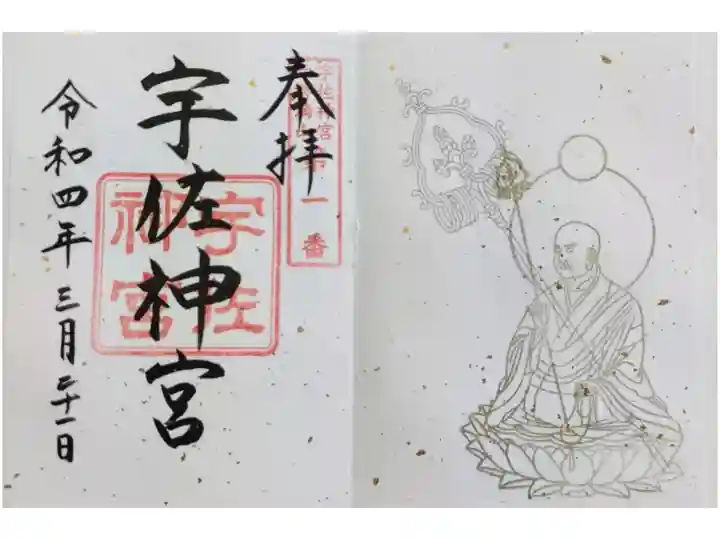 奉拝
宇佐神宮
令和四年三月二十一日
一番
宇佐
神宮